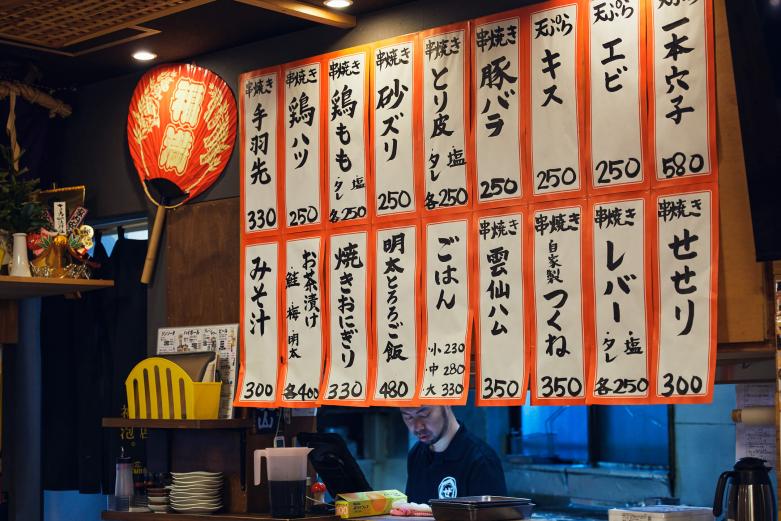 天ぷら
一本穴子
580
天ぷら
エビ
250
天ぷら
キス
250
串焼き
豚バラ
250
串焼き
とり皮
塩
タレ
各250
串焼き
砂ズリ
250
串焼き
鶏もも
塩
タレ
各250
串焼き
鶏ハツ
250
串焼き
手羽先
330
串焼き
せせり
300
串焼き
レバー
塩
タレ
各250
串焼き
自家製
つくね
350
串焼き
雲仙ハム
350
ごはん
小230
中280
大330
明太とろろご飯
480
焼きおにぎり
330
お茶漬け
鮭・梅・明太
各400
みそ汁
300